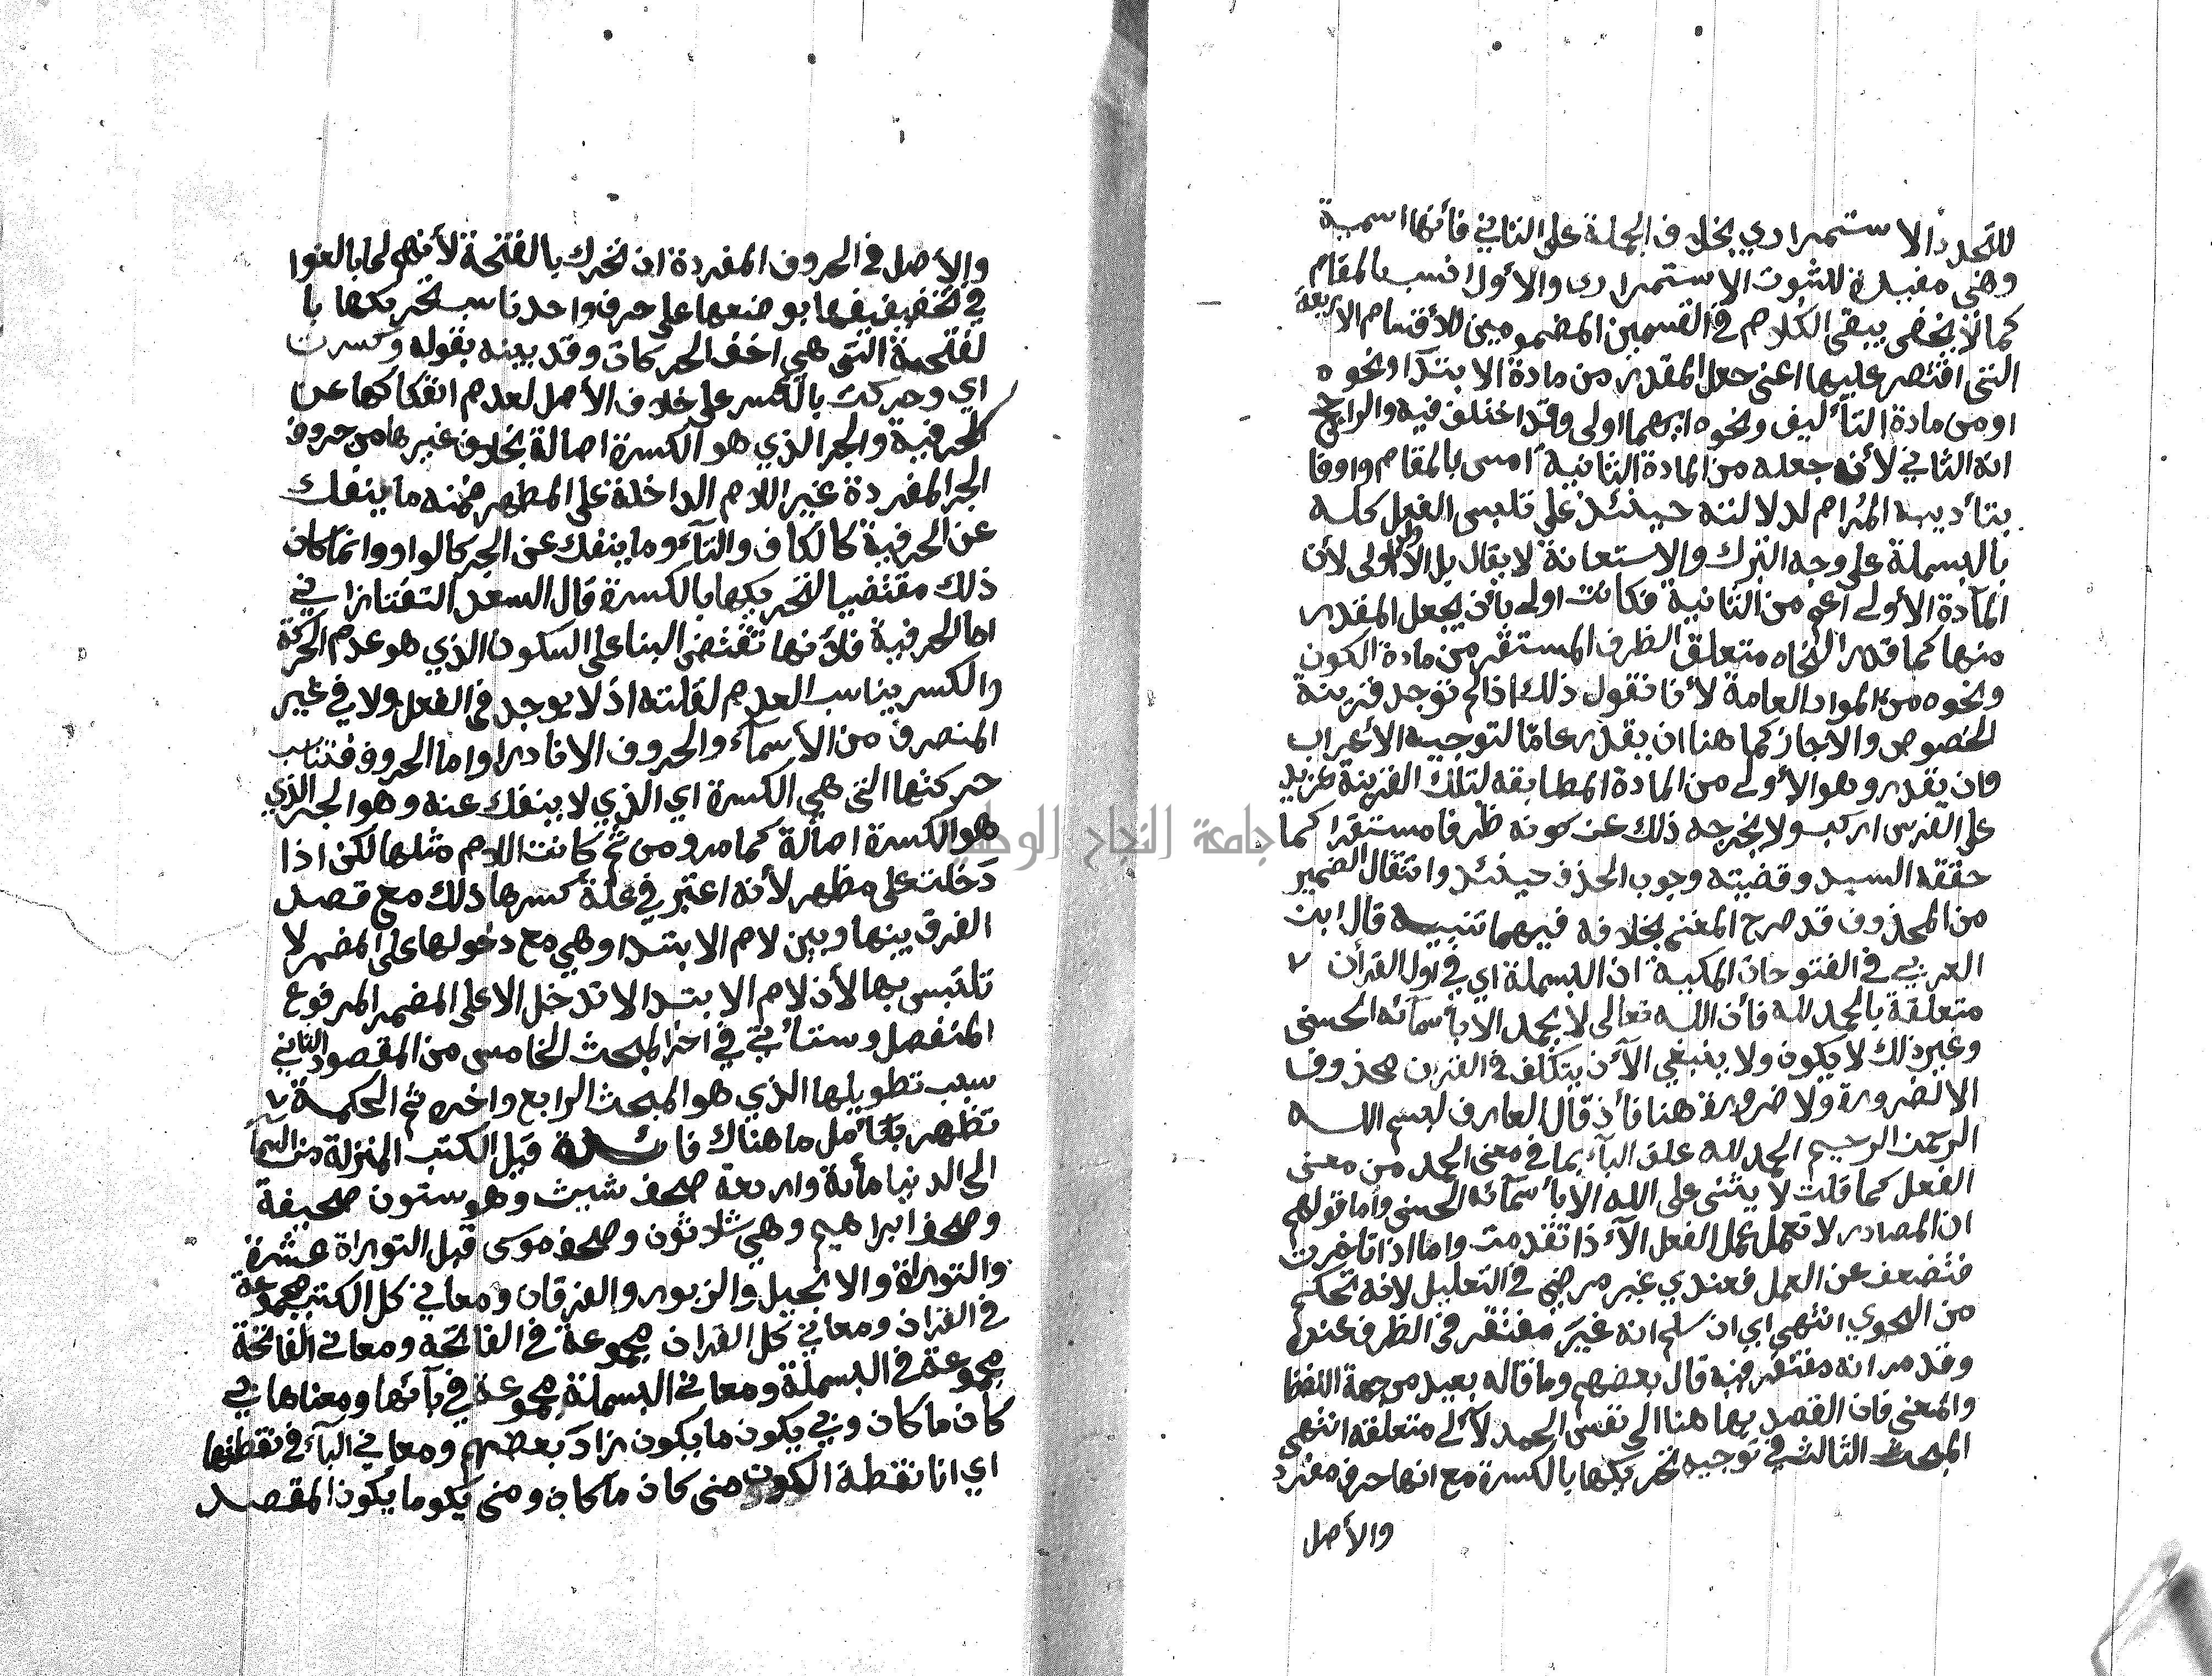 للتجدد الاستمرادي بخلاف الجملة على الثاني فأنها اسمية
وهي مفيدة للثبوت الاستمراري والأول انسب بالمقام
كما لا يخفى يبقى الكلام في القسمين المضمومين للأقسام الاربعة
التي اقتصر عليها اعني جعل المقدر من مادة الابتدآ ونحوه
او من مادة التأليف ونحوه ايهما اولى وقد اختلف فيه والراجح
انه الثاني لأنه جعله من المادة الثانية أمس بالمقام واوفا
بتأديه المرام لدلالته حينئذ على تلبس الفعل كله
بالبسملة على وجه التبرك والاستعانة لا يقال بل الأولى لأن
المآدة الأولى أعم من الثانية فكانت اولى بأن يجعل المقدر
منها كما قدر النحاه متعلق الظرف المستقر من مادة الكون
ونحوه من المواد العامة لأنا نقول ذلك اذا لم توجد قرينة
الخصوص والا جاز كما هنا ان يقدر عامًا لتوجيه الأعراب
وان يقدر وهو الأولى من المادة المطابقة لتلك القرينة كزيد
على الفرس اركب ولا يخرجه ذلك عن كونه ظرفا مستقرا كما
حققه السيد وقضيته وجوب الحذف حينئذ وانتقال الضمير
من المحذوف قد صرح المغني بخلافه فيهما تنبيه قال ابن
العربي في الفتوحات المكية ان البسملة اي في اول القرأن
متعلقة بالحمد لله فأن الله تعالى لا يحمد الا بأسمآئه الحسنى
وغير ذلك لا يكون ولا ينبغي الآ ان يتكلف في القران محذوفا
الا لضرورة ولا ضرورة هنا فأذ قال العارف بسم الله
الرحمن الرحيم الحمد لله علق البآء بما في معنى الحمد من معنى
الفعل كما قلت لا يثنى على الله الا بأسمآئه الحسنى وأما قولهم
ان المصادر لا تعمل عمل الفعل الآ اذا تقدمت واما اذا تأخرت
فتضعف عن العمل فعندي غير مرضي في التعليل لانه تحكم
من النحوي انتهى اي ان سلم انه غير مفتقر في الظرف عندهم
وقد مر انه مفتقر فيه قال بعضهم وما قاله بعيد من جهة اللفظ
والمعنى فان القصد بها هنا الى نفس الحمد لا الى متعلقه انتهى
المبحث الثالث في توجيه تحريكها بالكسرة مع انها حرف مفرد
والأصل
والأصل في الحروف المفردة ان تحرك بالفتحة لأنهم لما بالغوا
في تخفيفها بوضعها على حرف واحد ناسب تحريكها با
لفتحة التي هي اخف الحركات وقد بينه بقوله وكسرت
اي وحركت بالكسر على خلاف الأصل لعدم انفكاكها عن
الحرفية والجر الذي هو الكسرة اصالة بخلاف غيرها من حروف
الجر المفردة غير اللام الداخلة على المظهر فمنه ما ينفك
عن الحرفية كالكاف والتآء وما ينفك عن الجر كالواو وانما كان
ذلك مقتضيا لتحريكها بالكسرة قال السعد التفتازاني
اما الحرفية فلأنها تقتضي البنا على السكون الذي هو عدم الحركة
والكسر يناسب العدم لقلته اذ لا يوجد في الفعل ولا في غير
المنصرف من الأسمآء والحروف الا نادرا واما الحروف فتناسب
حركتها التي هي الكسرة اي الذي لا ينفك عنه وهو الجر الذي
هو الكسرة اصالة كما مر ومن ثم كانت اللام مثلها لكن اذا
دخلت على مظهر لأنه اعتبر في علة كسرها ذلك مع قصد
الفرق بينها وبين لام الابتدا وهي مع دخولها على المضمر لا
تلتبس بها لأن لام الابتدا لا تدخل الا على المضمر المرفوع
المنفصل وستأتي في اخر المبحث الخامس من المقصود الثاني
سبب تطويلها الذي هو المبحث الرابع واخره ثم الحكمة
تظهر بتأمل ما هناك فائدة قيل الكتب المنزلة من السمآ
الى الدنيا مأئة واربعة صحف شيث وهو ستون صحيفة
وصحف ابراهيم وهي ثلاثون وصحف موسى قبل التوراة عشرة
والتوراة والانجيل والزبور والفرقان ومعاني كل الكتب مجموعة
في القران ومعاني كل القران مجموعة في الفاتحه ومعاني الفاتحة
مجموعة في البسملة ومعاني البسملة مجموعة في بآئها ومعناها بي
كان ما كان وبي يكون ما يكون زاد بعضهم ومعاني البآء في نقطتها
اي انا نقطة الكون مني كان ما كان ومني يكو ما يكون المقصد
جامعة النجاح الوطنية